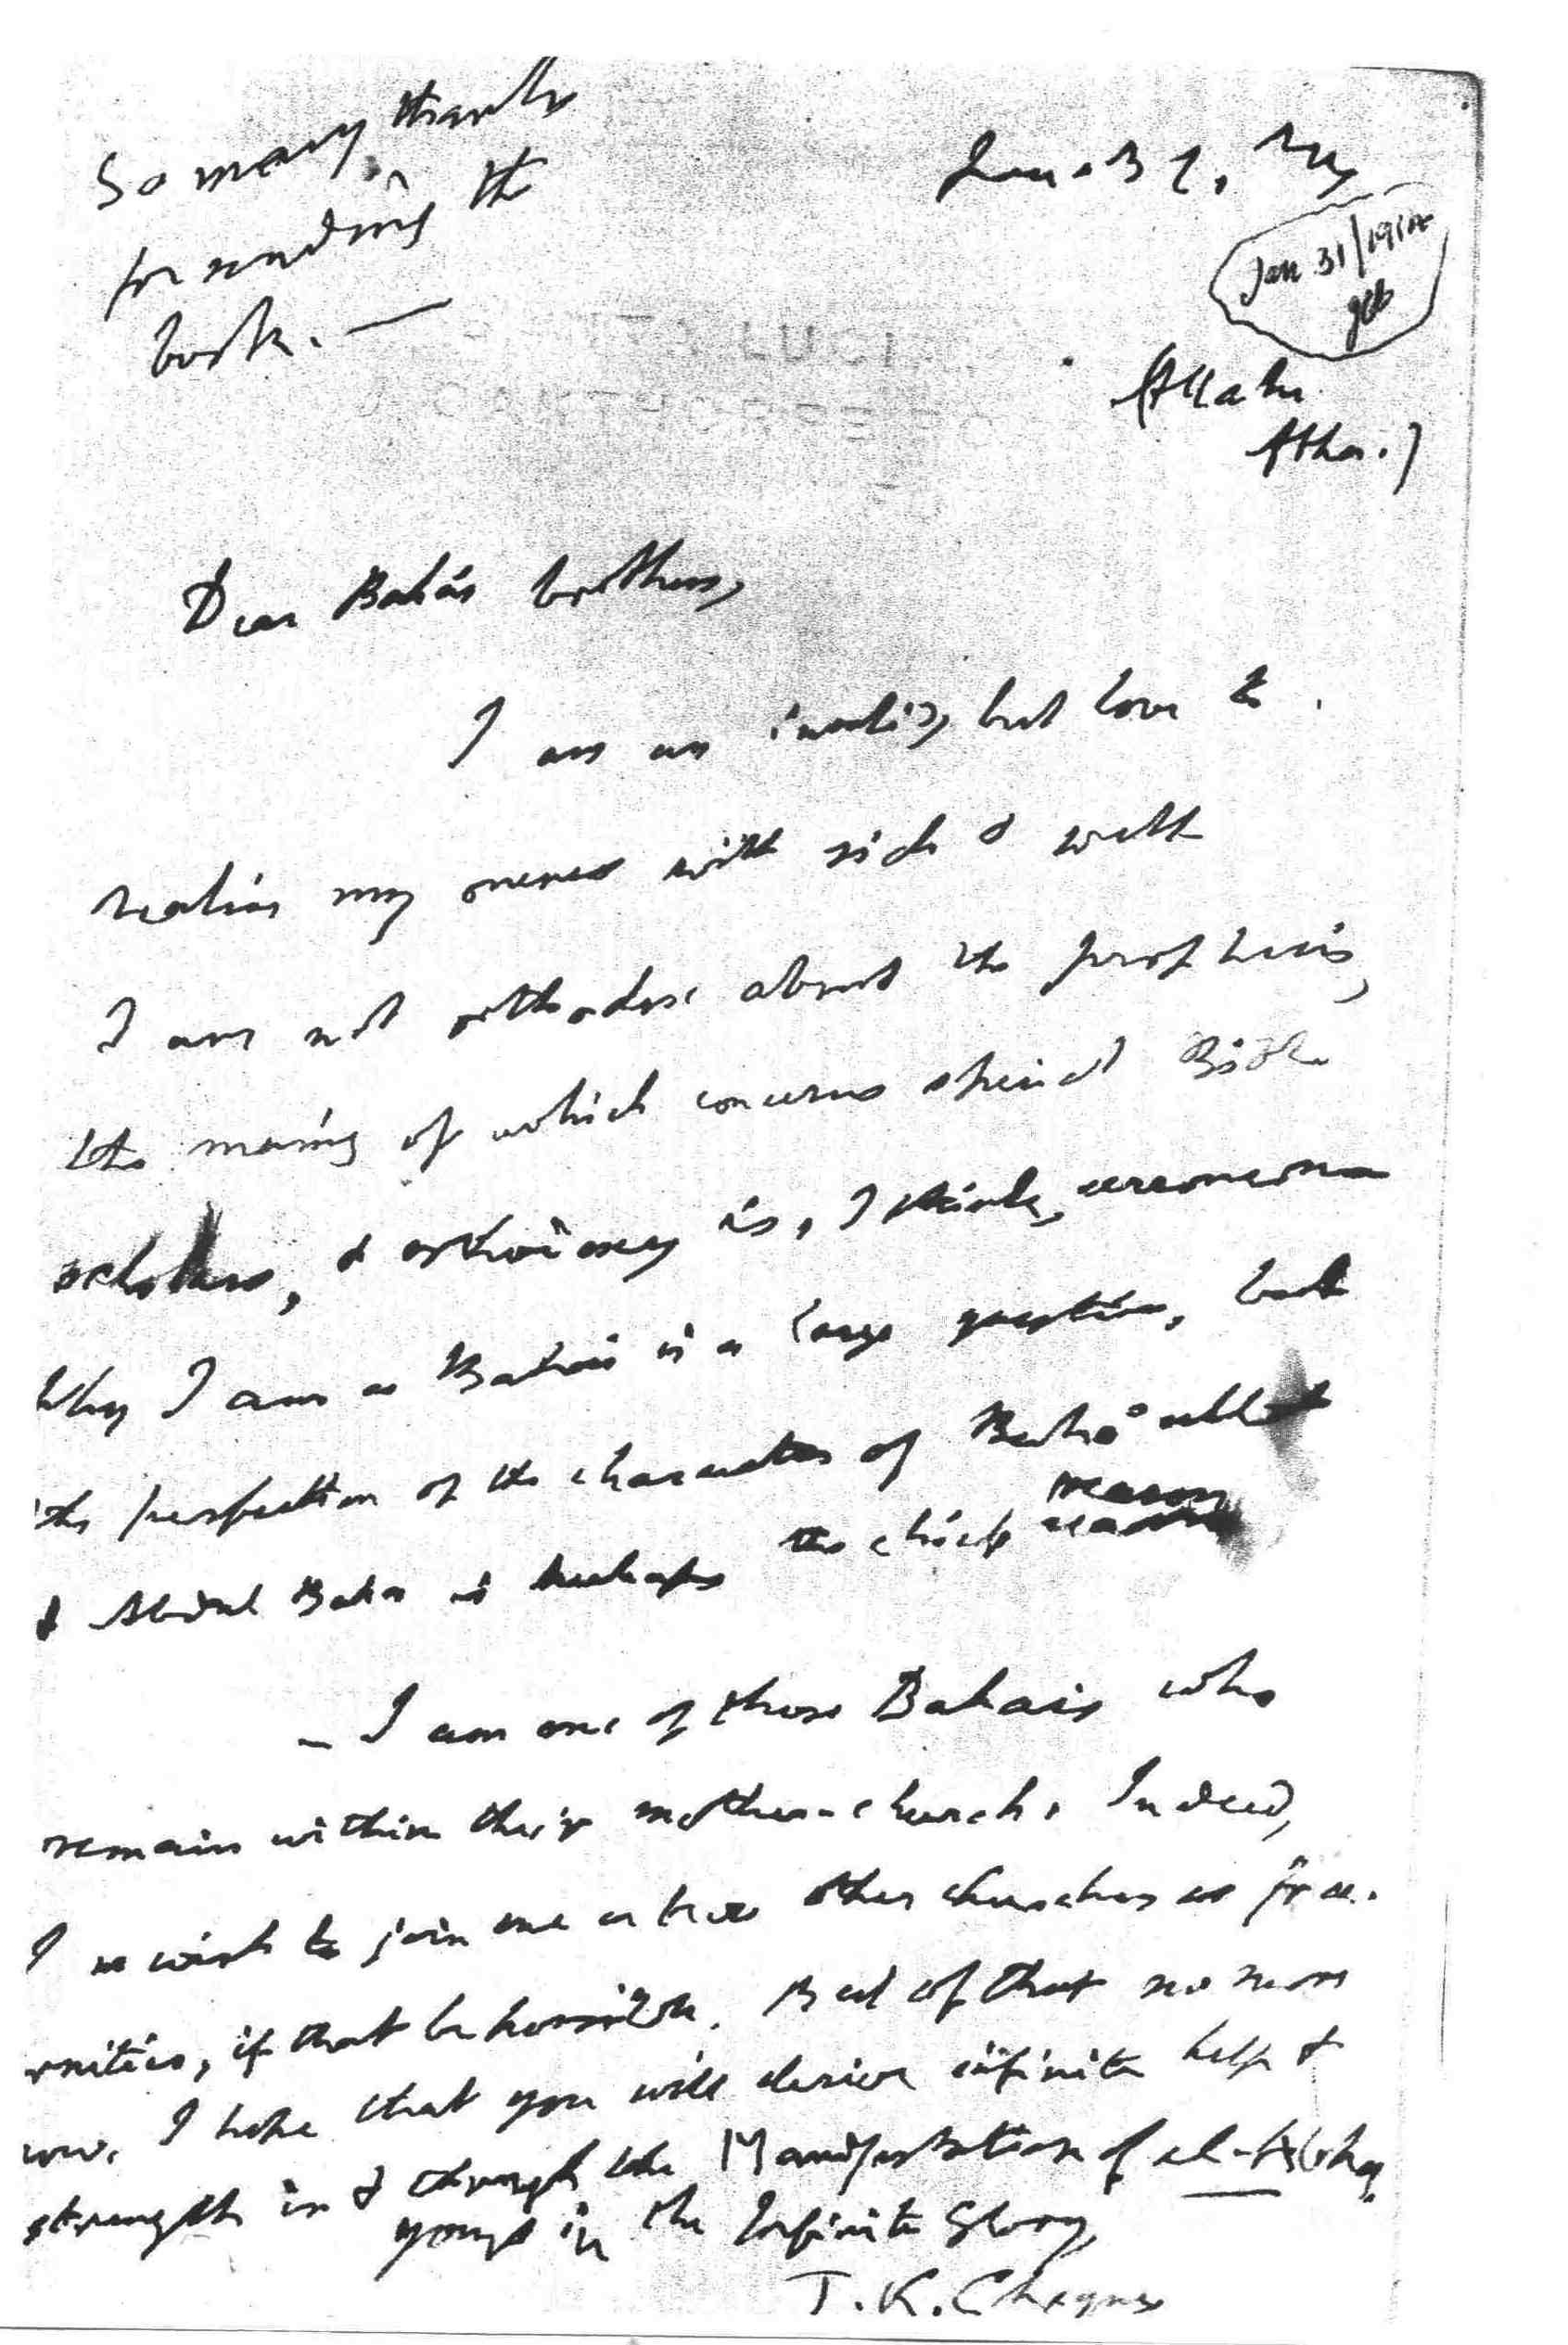 So many thanks
for sending the
book. —
Jan. 31,
Jan 31/1914
(Allahu
Abha.)
Dear Bahai brothers,
I am an invalid, but love to
realise my oneness with sick & well
I am not orthodox about the prophecies,
the meaning of which concerns specially Bible
scholars, & orthodoxy is, I think, erroneous
Why I am a Bahai is a large question, but
the perfection of the character of Baha'ullah
& Abdul Baha is perhaps the chief reason
– I am one of those Bahais who
remain within their mother-church. Indeed,
I wish to join one or two other churches as frat-
ernities, if that be possible. But of that no more
now. I hope that you will derive infinite help &
strength in & through the Manifestation of el-Abha.
yours in the Infinite Glory,
T. K. Cheyne